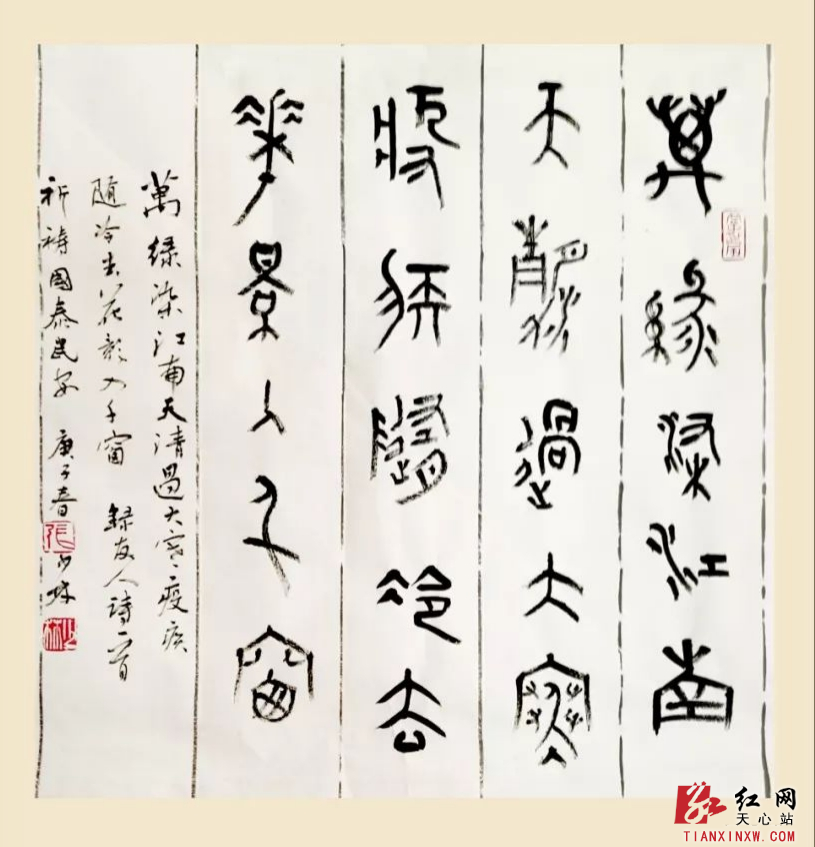 萬綠染江南
天清過大寒
疫疾隨冷去
華景入千窗
萬綠染江南天清過大寒疫疾
隨冷去花影入千窗 錄友人詩一首
祈禱國泰民安 庚子春 少林
红网
天心站
TIANXINXW.COM